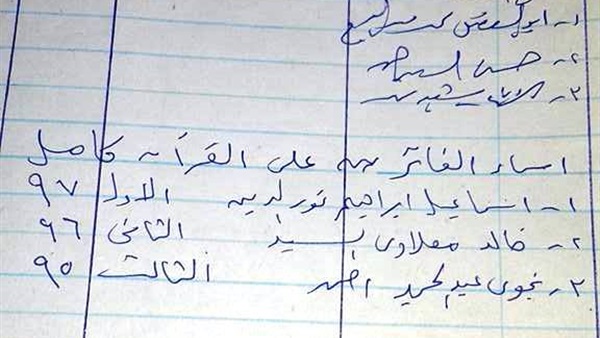 ١-
٢- حسن السيد
٣-
اسماء الفائزين على القرآن كامل
١- اسماعيل ابراهيم نور الدين الاول ٩٧
٢- خالد معلاوى السيد الثانى ٩٦
٣- نجوى عبد الحميد احمد الثالث ٩٥